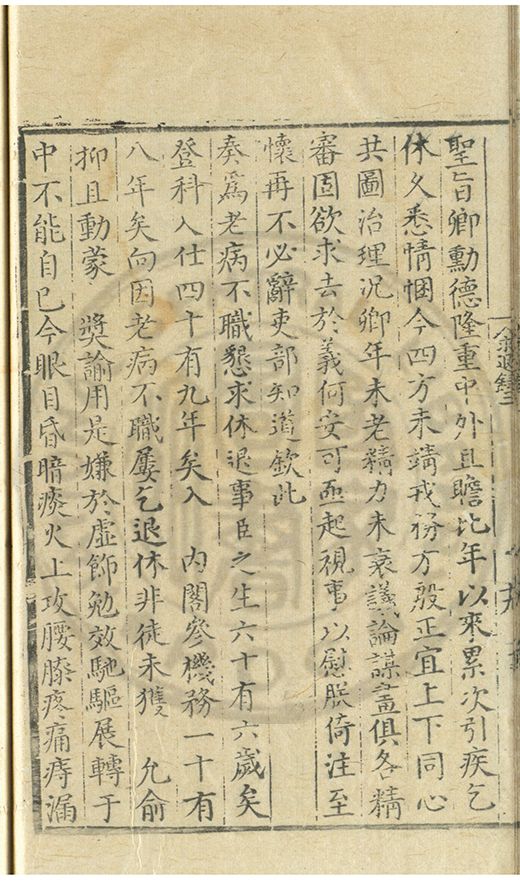 聖旨卿勳德隆重中外具瞻比年以來累次引疾乞
休久悉情悃今四方未靖戎務方殷正宜上下同心
共圖治理况卿年未老精力未衰議論謀畫俱各精
審固欲求去於義何安可亟起視事以慰朕倚注至
懷再不必辭吏部知道欽此
奏爲老病不職懇求休退事臣之生六十有六歲矣
登科入仕四十有九年矣入 内閣參機務一十有
八年矣向因老病不職屢乞退休非徒未獲 允俞
抑且動蒙 奬諭用是嫌於虚飾勉效馳驅展轉于
中不能自已今眼目昏暗痰火上攻腰膝疼痛痔漏